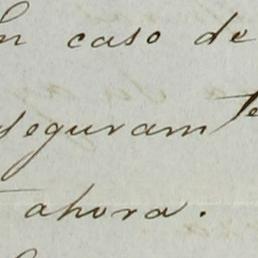 En caso de
seguramte
ahora.